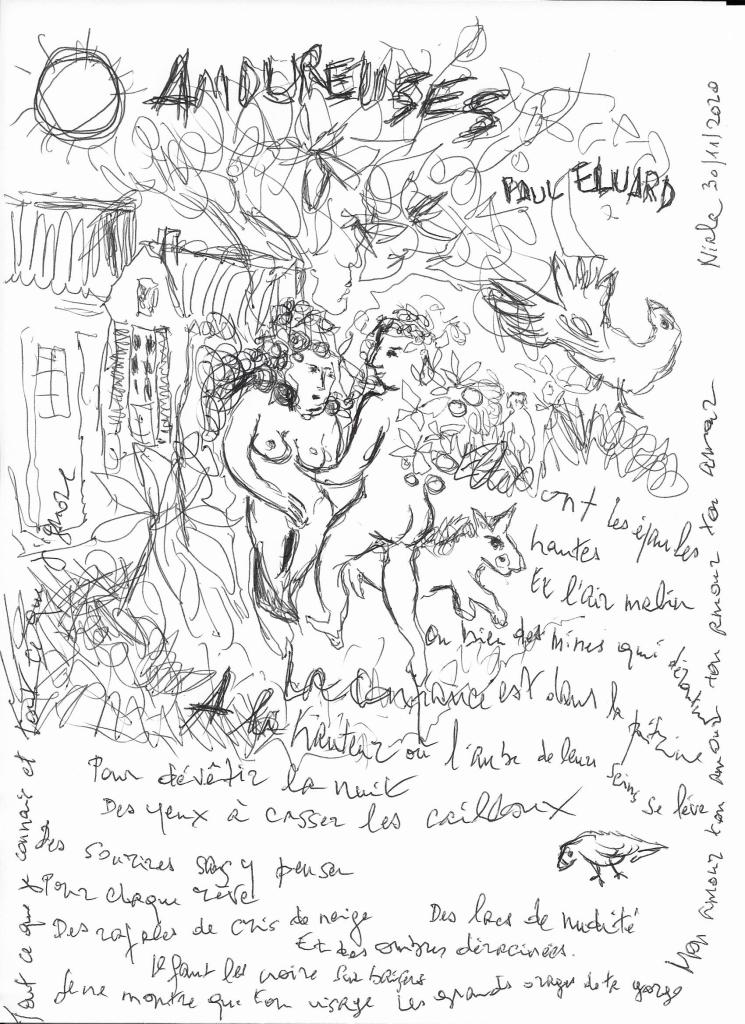 AMOUREUSES
PAUL ELUARD
Elles ont les épaules
hautes
Et l'air malin
ou bien des mines qui déroutent
La confiance est dans la poitrine
A la hauteur où l'aube de leurs seins se lève
Pour dévêtir la nuit
Des yeux à casser les cailloux
Des sourires sans y penser
Pour chaque rêve
Des rafales de cris de neige
Des lacs de nudité
Et des ombres déracinées.
Il faut les croire sur baisers
Je ne montre que ton visage Les grands orages de ta gorge
Tout ce que je connais et tout ce que j'ignore
Mon amour ton amour ton amour ton amour
30/11/2020